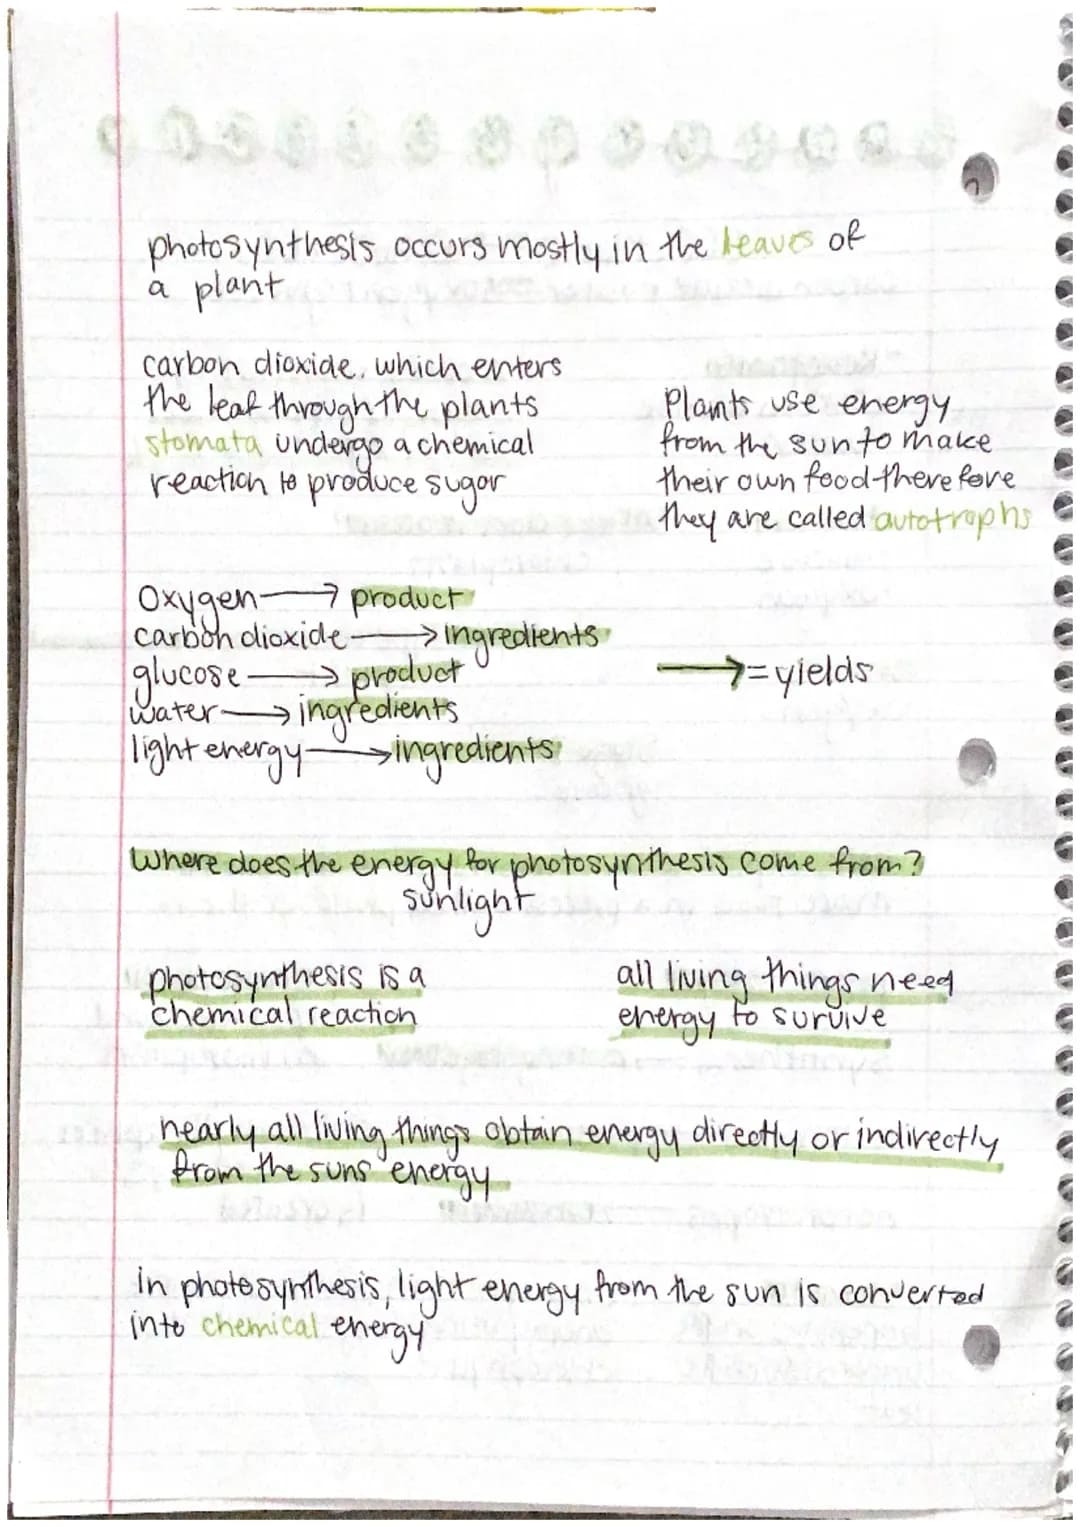 photosynthesis occurs mostly in the leaves of
a plant
carbon dioxide, which enters
the leaf through the plants
stomata undergo a chemical
reaction to produce sugar
Plants use energy
from the sun to make
their own food therefore
they are called autotrophs
Oxygen → product
carbon dioxide → ingredients
glucose → product
water → ingredients
light energy → ingredients
→ = yields
Where does the energy for photosynthesis come from?
sunlight
photosynthesis is a
chemical reaction
all living things need
energy to survive
nearly all living things obtain energy directly or indirectly
from the suns energy
in photosynthesis, light energy from the sun is converted
into chemical energy